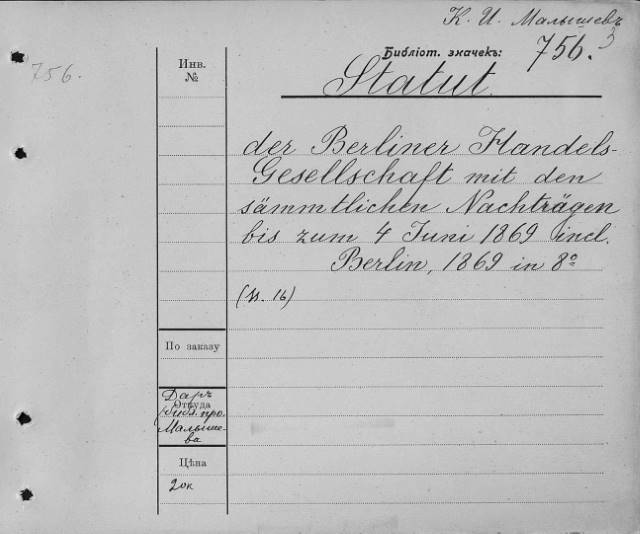 К. И. Малышевъ
3
Библіот. значекъ:
756.
756.
Инв.
№
Statut.
der Berliner Handels-
Gesellschaft mit den
sämmtlichen Nachträgen
bis zum 4 Juni 1869 incl.
Berlin, 1869 in 8º
По заказу
Откуда
Даръ
Малыше-
ва
Цѣна
20к